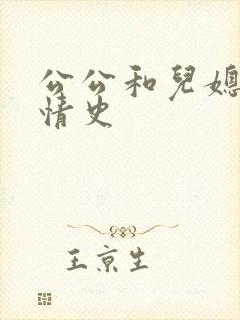 公公和兒媳
情史
王京生